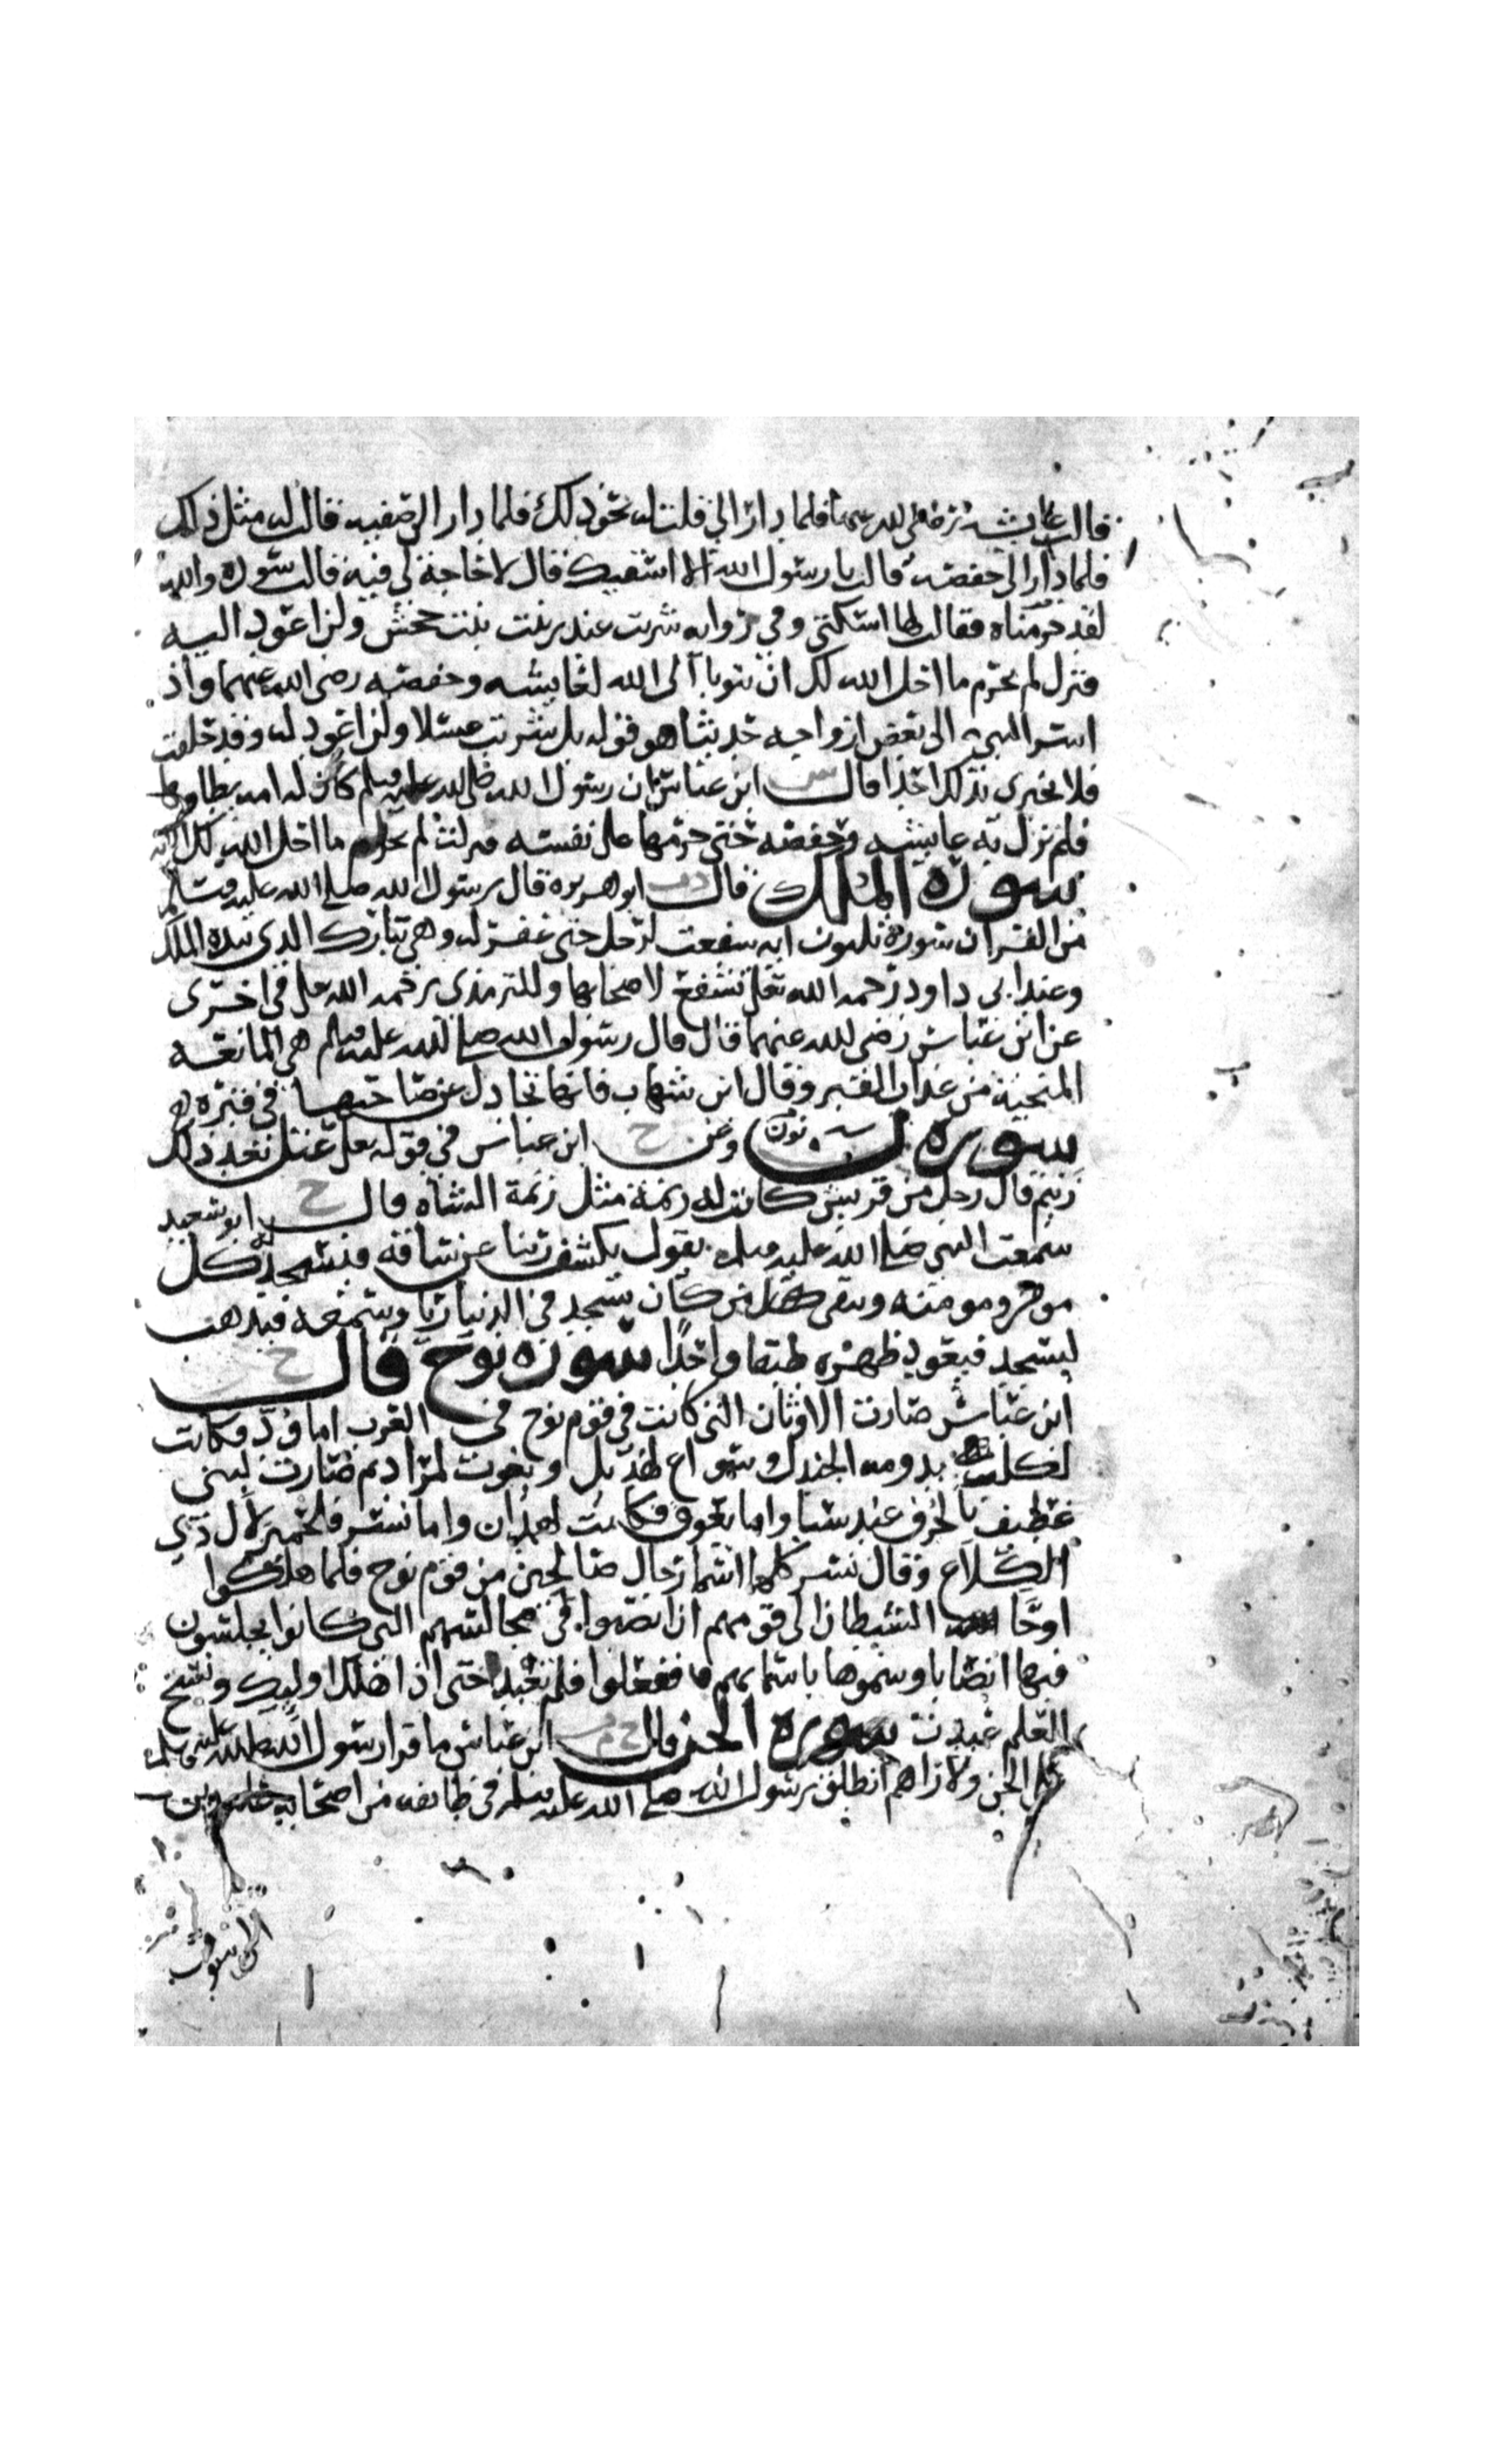 قالت عايشه رضي الله عنها فلما دار الي قلت له نحو ذلك فلما دار الى صفيه قالت له مثل ذلك
فلما دار الى حفصه قالت يا رسول الله الا اسقيك قال لا حاجة لي فيه قالت سوده والله
لقد حرمناه فقالت لها اسكتي وفي روايه شربت عند زينب بنت جحش ولن اعود اليه
فنزل لم تحرم ما احل الله لك ان تتوبا الى الله لعايشه وحفصه رضي الله عنهما واذ
اسر النبي الى بعض ازواجه حديثا هو قوله بل شربت عسلا ولن اعود له وقد حلفت
فلا تخبري بذلك احدا قال س ابن عباس ان رسول الله صلى الله عليه وسلم كان له امه يطاوها
فلم تزل به عايشه وحفصه حتى حرمها على نفسه فنزلت لم تحرم ما احل الله لك الايه
سورة الملك قال دت ابو هريره قال رسول الله صلى الله عليه وسلم
من القران سورة ثلثون ايه شفعت لرجل حتى غفر له وهي تبارك الذي بيده الملك
وعند ابي داود رحمه الله تعلى تشفع لاصحابها وللترمذي رحمه الله على في اخرى
عن ابن عباس رضي الله عنهما قال قال رسول الله صلى الله عليه وسلم هي المانعه
المنجية من عذاب القبر وقال ابن شهاب فانها تجادل عن صاحبها في قبره
سورة ن نون وعن ح ابن عباس في قوله تعلى عتل بعد ذلك
زنيم قال رجل من قريش كانت له زنمة مثل زنمة الشاه قال ح ابو سعيد
سمعت النبي صلى الله عليه وسلم يقول يكشف ربنا عن ساقه فيسجد له كل
مومن ومومنه ويبقى كل من كان يسجد في الدنيا ريا وسمعه فيذهب
ليسجد فيعود ظهره طبقا واحدا سورة نوح قال ح
ابن عباس صارت الاوثان التي كانت في قوم نوح في العرب اما ود فكانت
لكلب بدومه الجندل وسواع لهذيل ويغوث لمراد ثم صارت لبني
غطيف بالجرف عند سبا واما يعوق فكانت لهمدان واما نسر فلحمير لال ذي
الكلاع وقال نسر كلها اسما رجال صالحين من قوم نوح فلما هلكوا
اوحا الشيطان الى قومهم ان انصبوا في مجالسهم التي كانوا يجلسون
فيها انصابا وسموها باسمايهم ففعلوا فلم تعبد حتى اذا هلك اوليك ونسخ
العلم عبدت سورة الجن قال ح م ت ابن عباس ما قرا رسول الله صلى الله عليه وسلم
على الجن ولا راهم انطلق رسول الله صلى الله عليه وسلم في طايفه من اصحابه عامدين
الى سوق